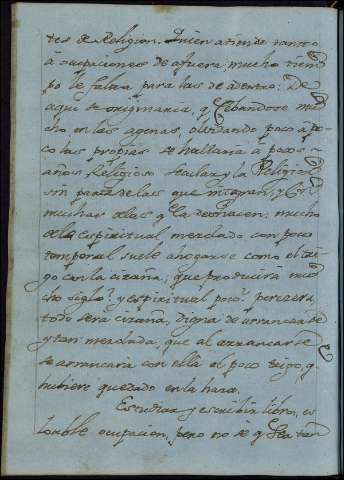 tes de Religion. Quien atiende tanto
à ocupaciones de afuera mucho tiem
po le falta para las de adentro: De
aqui se originaria, q Cebandose mu
cho en las agenas, olvidando poco a po
co las propias se hallaria à pocos
años Religioso Secular, y la Religion
sin partes de las que integran, y con
muchas de las q la deshacen: mucho
de lo espiritual mezclado con poco
temporal suele ahogarse como el tri
go con la cizaña; que producira mu
cho siglo, y espiritual poco, perecerà
todo serà cizaña, digna de arrancarse
y tan mezclada, que al arrancarse
se arrancaria con ella el poco trigo, q
hubiere quedado en la haza.
Estudiar, y escribir libros, es
loable ocupacion, pero no se q sea tan